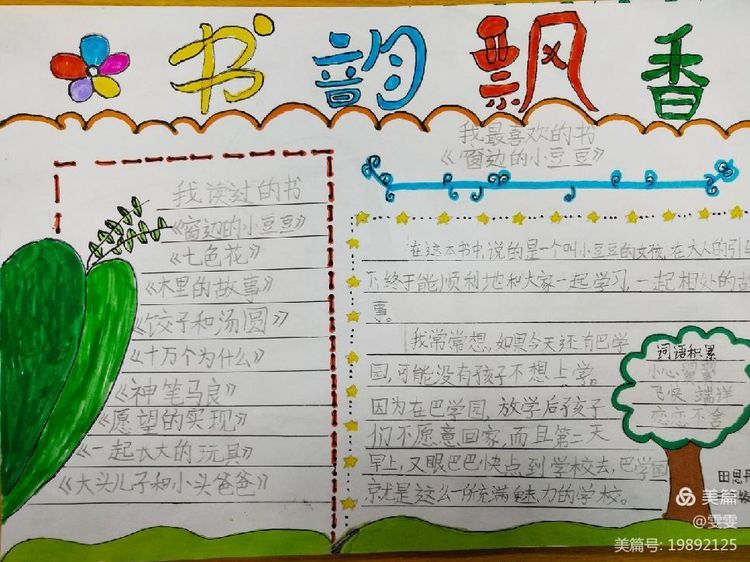 书韵飘香
我读过的书
《窗边的小豆豆》
《七色花》
《木里的故事》
《饺子和汤圆》
《十万个为什么》
《神笔马良》
《愿望的实现》
《一起长大的玩具》
《大头儿子和小头爸爸》
我最喜欢的书
《窗边的小豆豆》
在这本书中,说的是一个叫小豆豆的女孩,在大人的引导
下,终于能顺利地和大家一起学习,一起相处的故
事。
我常常想,如果今天还有巴学
园,可能没有孩子不想上学。
因为在巴学园,放学后孩子
们不愿意回家,而且第二天
早上,又眼巴巴快点到学校去,巴学园
就是这么一所充满魅力的学校。
词语积累
小心翼翼
飞快 端详
恋恋不舍
田思丹
美篇
@雯雯
美篇号: 19892125